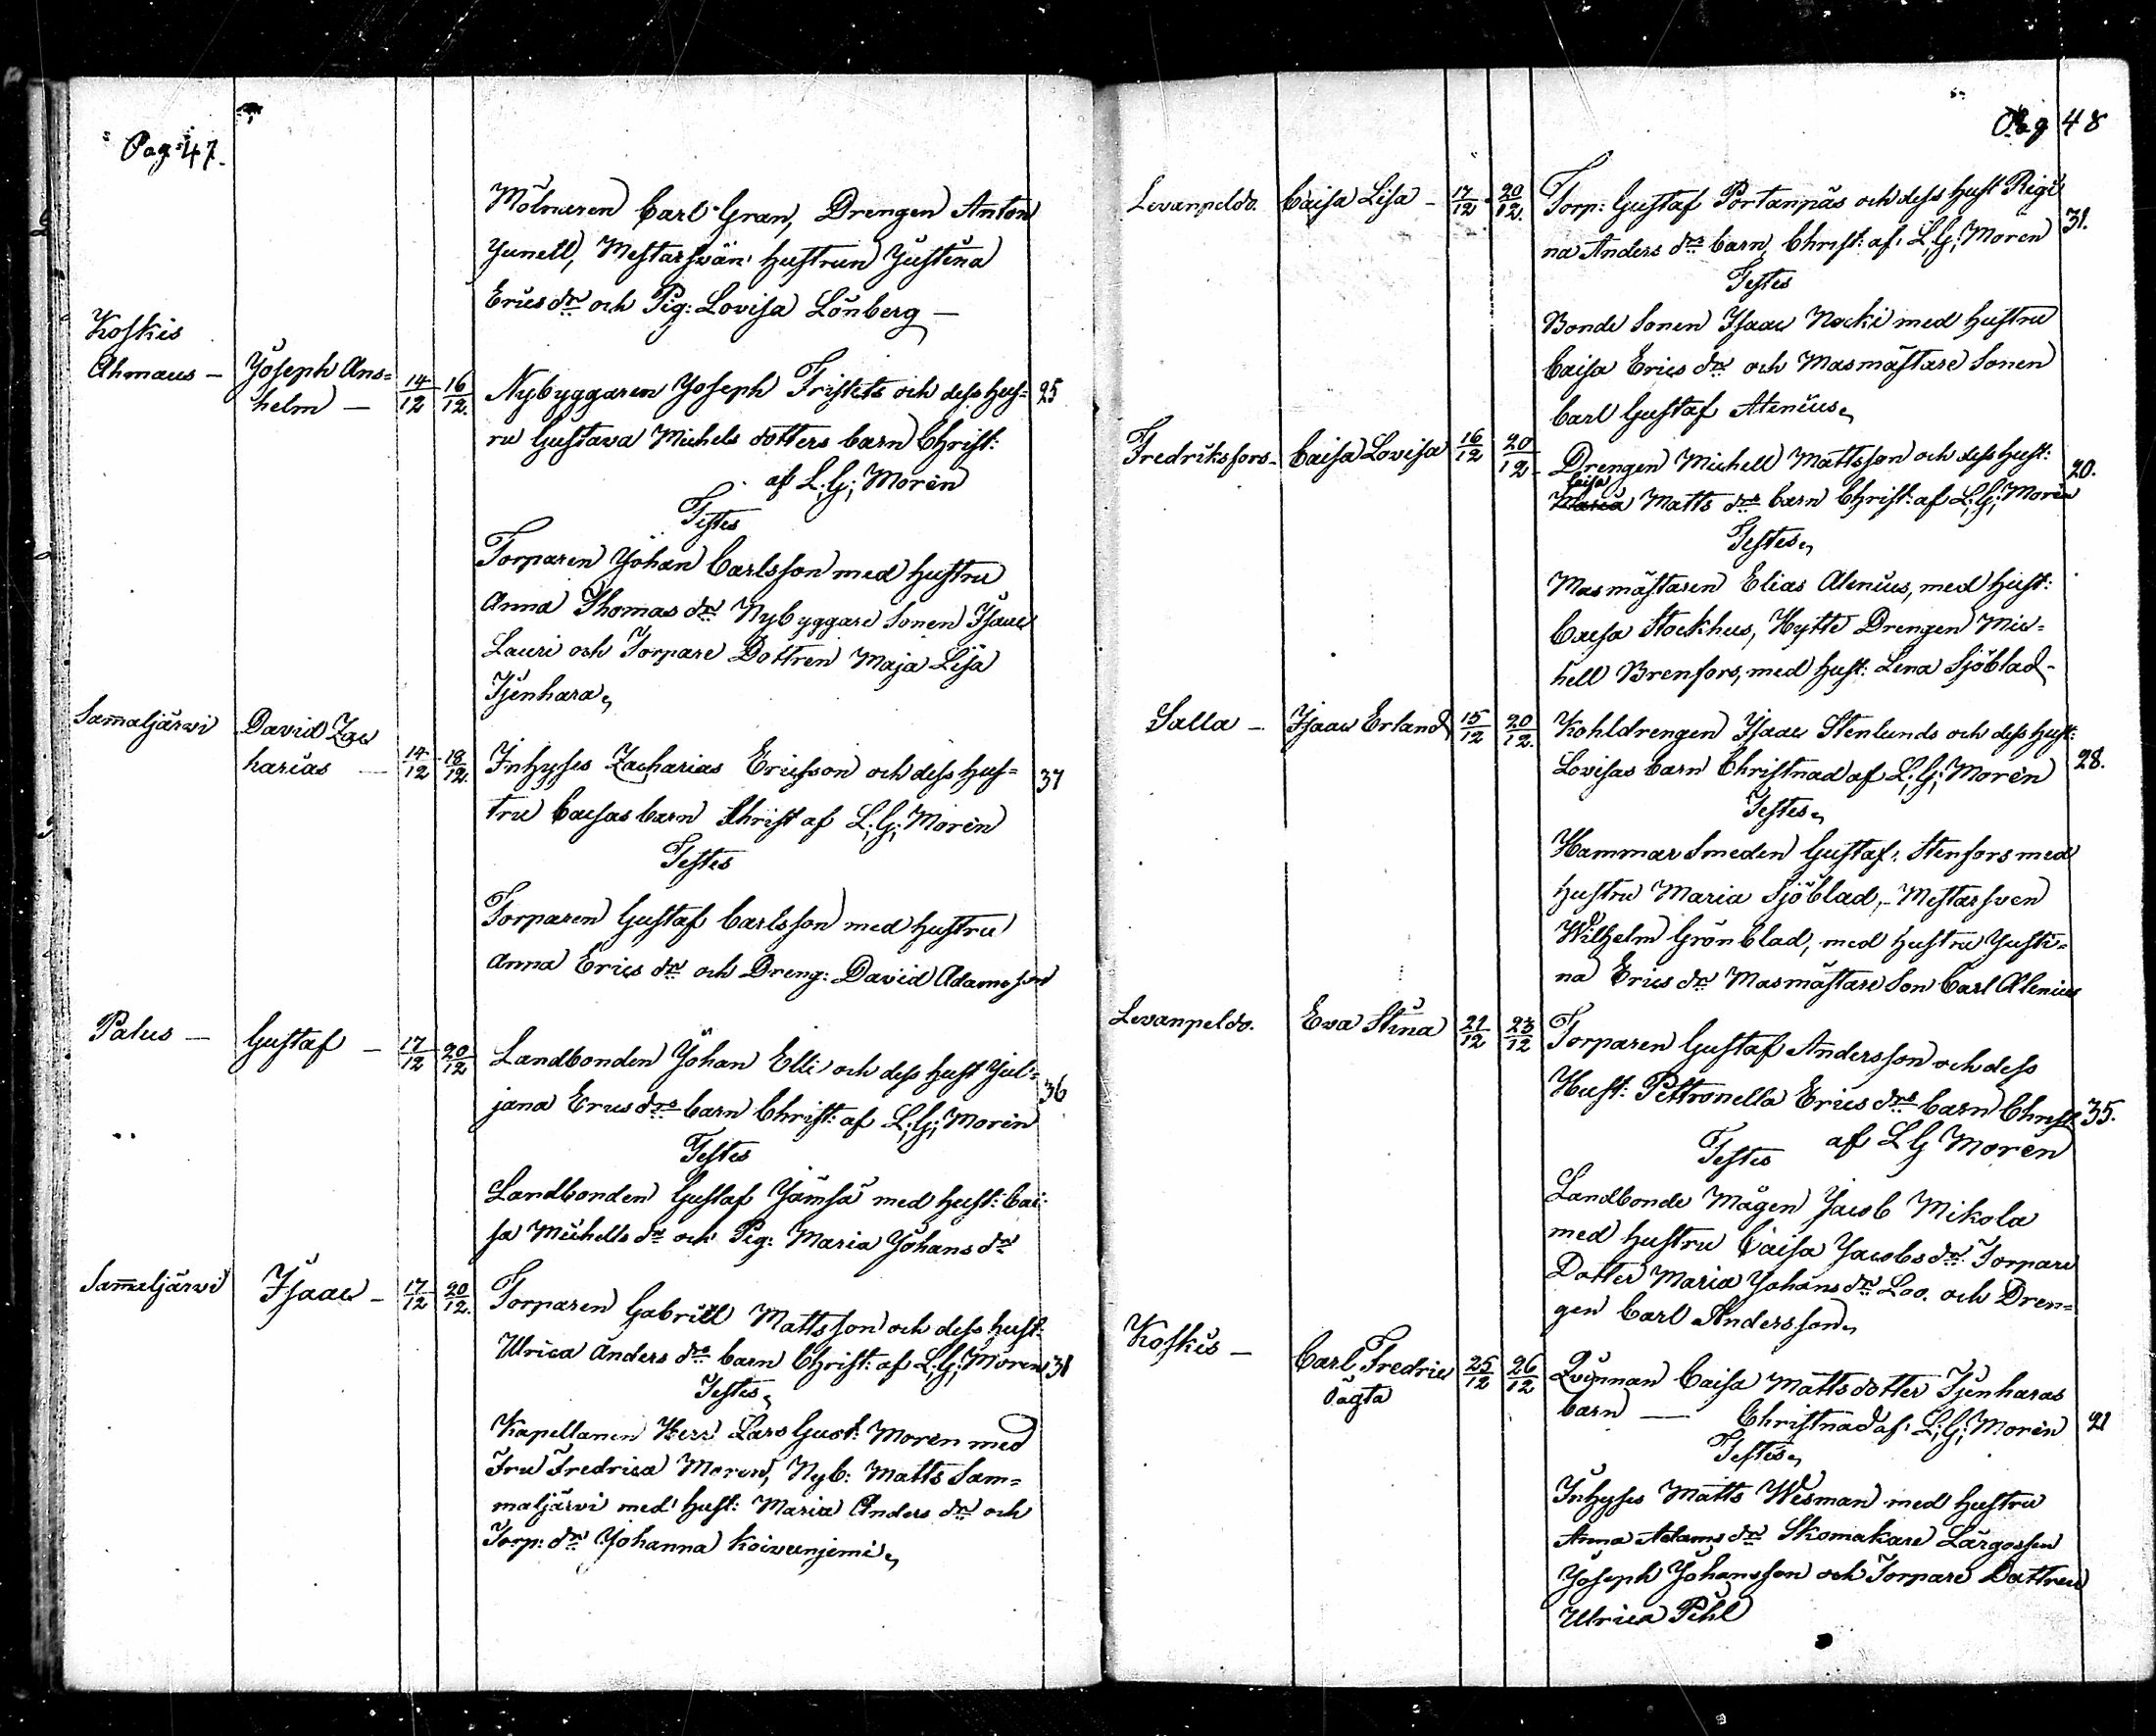 Pag 47.
Mölnaren Carl Gran, Drengen Anton
Junell, Mestarsvän: hustrun Justina
Erics dr och Pig: Lovisa Lönberg —
Koskis
Ahmaus — Joseph Ans=
helm — 14/12 16/12. Nybyggaren Joseph Fristets och dess hus= 25
ru Gustava Michels dotters barn Christ:
af L: G: Morén
Testes
Torparen Johan Carlsson med hustru
Anna Thomas dr Nybyggare Sonen Isaac
Lauri och Torpare Dottren Maja Lisa
Tjenhara,
Sam̄aljärvi David Zac
harias — 14/12 18/12. Inhyses Zacharias Ericsson och dess hus= 37
tru Caisas barn Christ af L: G: Morén
Testes
Torparen Gustaf Carlsson med hustru
Anna Erics dr och Dreng: David Adamsson
Palus — Gustaf — 17/12 20/12 Landbonden Johan Elli och dess hust Jul= 36
jana Erics drs barn Christ: af L: G: Morén
Testes
Landbonden Gustaf Jämsä med hust: Cai
sa Michells dr och Pig: Maria Johans dr
Sam̄aljärvi Isaac — 17/12 20/12. Torparen Gabriell Mattsson och dess hust:
Ulrica Anders drs barn Christ: af L: G: Morén 31
Testes,
Kapellanen Herr Lars Gust: Morén med
Fru Fredrica Morén, Nyb: Matts Sam=
maljärvi med hust: Maria Anders dr och
Torp: dr Johanna Koivunjemi,
Pag 48
Levanpeldo. Caisa Lisa — 17/12 20/12. Torp: Gustaf Portanpäs och dess hust Regi
na Anders drs barn, Christ: af L: G: Morén 31.
Testes
Bonde Sonen Isaac Nocki med hustru
Caisa Erics dr och Masmästare Sonen
Carl Gustaf Alenius,
Fredriksfors — Caisa Lovisa 16/12 20/12 — Drengen Michell Mattsson och dess hust:
Caisa
Maria Matts drs barn Christ: af L: G: Morén 20.
Testes,
Masmästaren Elias Alenius, med hust:
Caisa Stockhus, Hytte Drengen Mic=
hell Brenfors, med hust: Lena Sjöblad —
Salla — Isaac Erland 15/12 20/12. Kohldrengen Isaac Stenlunds och dess hust:
Lovisas barn Christnad af L: G: Morén 28.
Testes,
Hammar Smeden Gustaf Stenfors med
hustru Maria Sjöblad, Mestarsven
Wilhelm Grönblad, med hustru Justi=
na Erics dr Masmästare Son Carl Alenius
Levanpeldo. Eva Stina 21/12 23/12 Torparen Gustaf Andersson och dess
Hust: Pettronella Erics drs barn Christ: 35.
af L G Morén
Testes
Landbonde Mågen Jacob Mikola
med hustru Caisa Jacobs dr Torpare
Dotter Maria Johans dr Loo. och Dren=
gen Carl Andersson,
Koskis — Carl Fredric 25/12 26/12 Qvinnan Caisa Matts dotter Tjenharas
oägta barn — Christnad af L: G: Morén 21
Testes,
Inhyses Matts Wesman med hustru
Anna Adams dr Skomakare Lärgossen
Joseph Johansson och Torpare Dottren
Ulrica Pihl